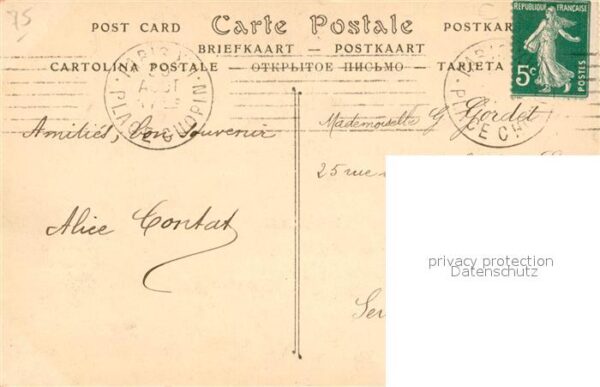 75
POST CARD Carte Postale POSTKAR
BRIEFKAART — POSTKAART
CARTOLINA POSTALE — ОТКРЫТОЕ ПИСЬМО — TARJETA
REPUBLIQUE FRANÇAISE
5c
POSTES
PLACE CHOPIN
AOUT
PLACE CH
Amitiés, bon souvenir
Alice Contat
Mademoiselle G Gordet
25 rue
Ser
privacy protection
Datenschutz